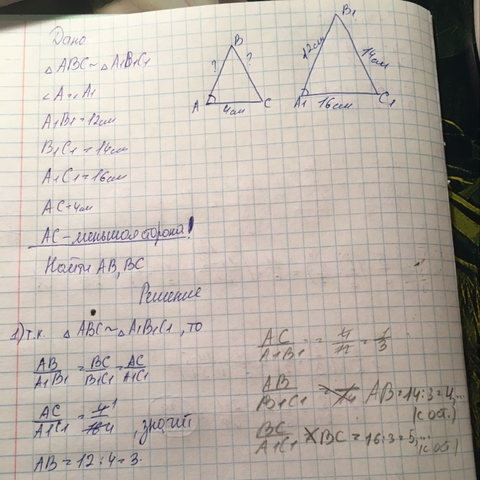 Дано
△ABC ~ △A1B1C1
∠A = ∠A1
A1B1 = 12см
B1C1 = 14см
A1C1 = 16см
AC = 4см
AC - меньшая сторона!
Найти AB, BC
B
? ?
A 4см C
B1
12см 14см
A1 16см C1
Решение
1) т.к. △ABC ~ △A1B1C1, то
AB/A1B1 = BC/B1C1 = AC/A1C1
AC/A1C1 = 4/16 1/4, значит
AB = 12 : 4 = 3.
AC/A1B1 = 4/12 = 1/3
AB/B1C1 = AB = 14:3 = 4,...
(с ост.)
BC/A1C1 BC = 16:3 = 5,...
(с ост.)